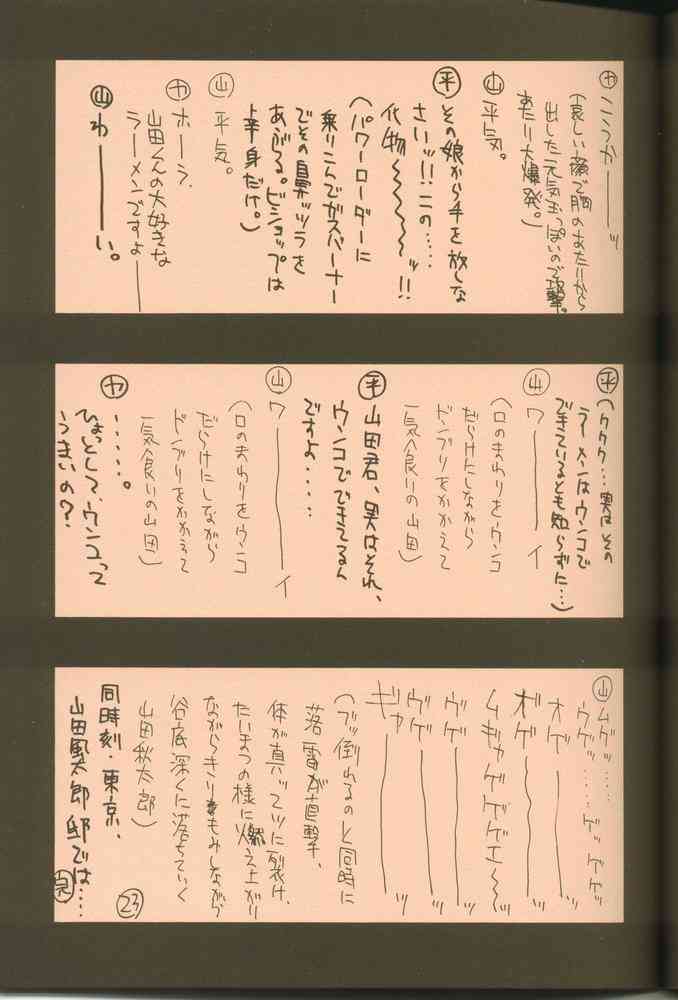 ヤ こうかーーーッ
(哀しい顔で胸のあたりから
出した元気玉っぽいので攻撃。
あたり大爆発。)
山 平気。
平 その娘から手を放しな
さいッ!!この……
化物〜〜〜〜〜ッ!!
(パワーローダーに
乗りこんでガスバーナー
でその鼻ッツラを
あぶる。ビショップは
上半身だけ。)
山 平気。
ヤ ホーラ、
山田くんの大好きな
ラーメンですよ――
山 わーーーーい。
平 (ククク…実はその
ラーメンはウンコで
できているとも知らずに…)
山 ワーーーーイ
(口のまわりをウンコ
だらけにしながら
ドンブリをかかえて
一気食いの山田)
平 山田君、実はそれ、
ウンコでできてるん
ですよ……
山 ワーーーーーイ
(口のまわりをウンコ
だらけにしながら
ドンブリをかかえて
一気食いの山田)
ヤ ……。
ひょっとして、ウンコって
うまいの?
山 ムゲッ……
ウゲッ……ゲッゲゲッ
オゲーーーーッ
オゲーーーーッ
ムギャゲゲゲエ〜〜ッ
ウゲーーーーッ
ウゲーーーーッ
ギャーーーーッ
(ブッ倒れるのと同時に
落雷が直撃、
体が真ッ二ツに裂け、
たいまつの様に燃え上がり
ながらきりもみしながら
谷底深くに落ちていく
山田秋太郎)
同時刻・東京、
山田風太郎邸では……
完
23